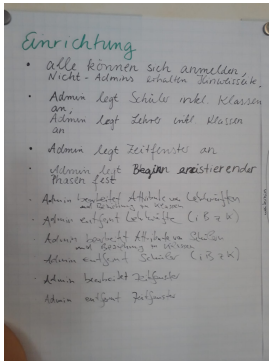 Einrichtung
• alle können sich anmelden,
Nicht-Admins erhalten Hinweisseite.
• Admin legt Schüler inkl. Klassen
an,
Admin legt Lehrer inkl Klassen
an
• Admin legt Zeitfenster an
• Admin legt Beginn
Phasen fest
• Admin bearbeitet Attribute von Lehrkräften
und Beziehung zu Klassen
• Admin entfernt Lehrkräfte (i, B z K)
• Admin bearbeitet Attribute von Schülern
und Beziehung zu Klassen
• Admin entfernt Schüler (i, B z K)
• Admin bearbeitet Zeitfenster
• Admin entfernt Zeitfenster